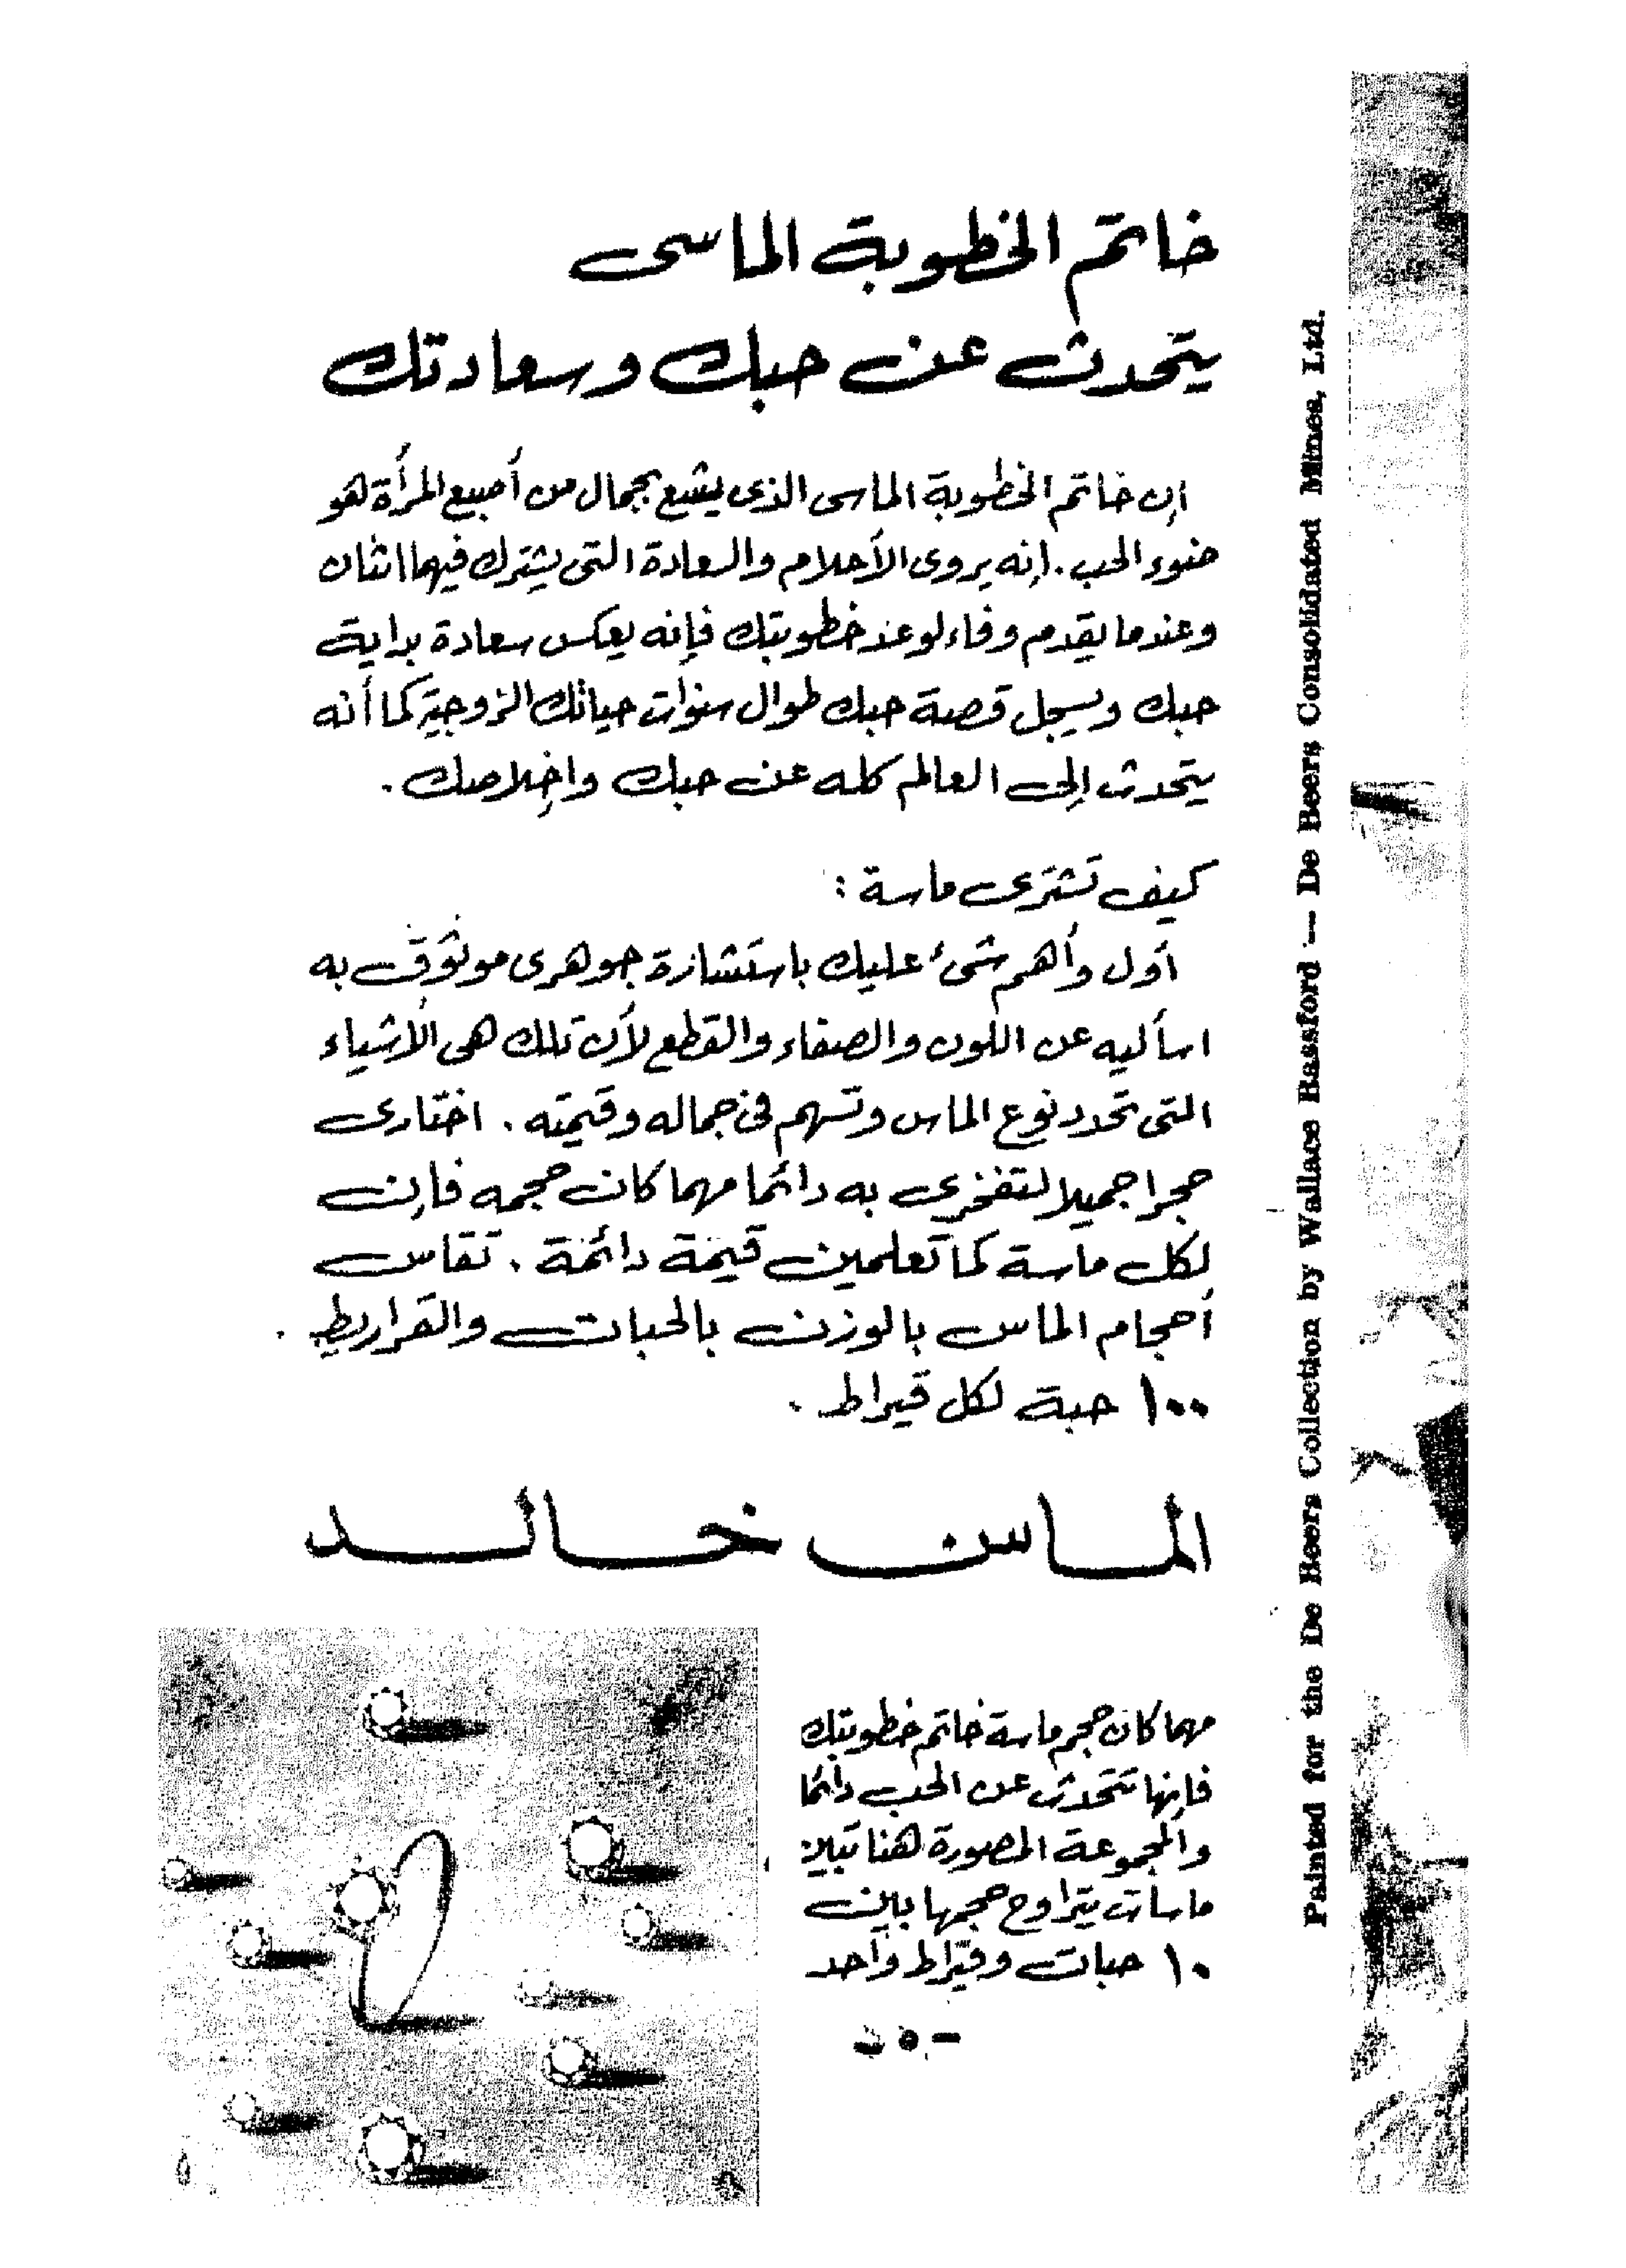 خاتم الخطوبة الماسى
يتحدث عن حبك وسعادتك
إن خاتم الخطوبة الماسى الذى يشع بجمال من أصبع المرأة هو
ضوء الحب. إنه يروى الأحلام والسعادة التى يشترك فيهما اثنان
وعندما يقدم وفاء لوعد خطوبتك فإنه يعكس سعادة بداية
حبك ويسجل قصة حبك طوال سنوات حياتك الزوجية كما أنه
يتحدث إلى العالم كله عن حبك وإخلاصك.
كيف تشترى ماسة :
أول وأهم شىء عليك باستشارة جوهرى موثوق به
اسأليه عن اللون والصفاء والقطع لأن تلك هى الأشياء
التى تحدد نوع الماس وتسهم فى جماله وقيمته. اختارى
حجرا جميلا لتفخرى به دائما مهما كان حجمه فإن
لكل ماسة كما تعلمين قيمة دائمة. تقاس
أحجام الماس بالوزن بالحبات والقراريط.
١٠٠ حبة لكل قيراط.
الماس خالد
مهما كان حجم ماسة خاتم خطوبتك
فإنها تتحدث عن الحب دائما
والمجموعة المصورة هنا تبين
ماسات يتراوح حجمها بين
١٠ حبات وقيراط واحد
Painted for the De Beers Collection by Wallace Bassford — De Beers Consolidated Mines, Ltd.